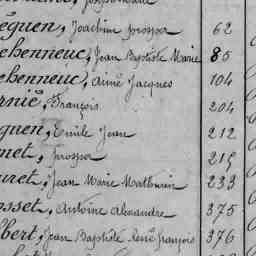 éguen, Joachim prosper 62
ehenneuc, Jean Baptiste Marie 85
ehenneuc, Aimé Jacques 104
rnié, François 204
guen, Emile Jean 212
met, prosper 215
uret, Jean Marie Mathurin 233
osset, Antoine Alexandre 375
lbert, Jean Baptiste René françois 376